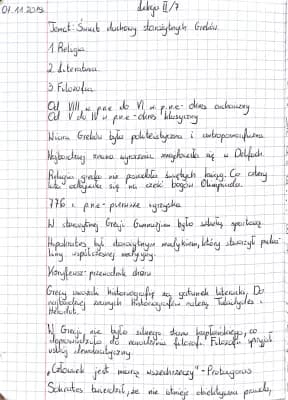 04.11.2019. Lekcja II/7
Temat: Świat duchowy starożytnych Greków.
1 Religia
2. Literatura
3 Filozofia
Od VIII w p.n.e do VI w p.n.e - okres archaiczny
Od V do IV w p.n.e - okres klasyczny
Wiara Greków była politeistyczna i antropomorficzna
Najbardziej znana wyrocznia znajdowała się w Delfach.
Religia grecka nie posiadała świętych ksiąg. Co cztery
lata odbywała się na cześć bogów Olimpiada.
776 r. p.n.e - pierwsze igrzyska
W starożytnej Grecji Gimnazjum było szkołą sportową.
Hipokrates był starożytnym medykiem, który stworzył
współczesnej medycyny.
Koryfeusz - przewodnik chóru
Grecy uważali historiografię za gatunek literacki. Do
najbardziej znanych historiografów należą Tukidydes i
Herodot.
W Grecji nie było silnego stanu kapłańskiego, co
doprowadziło do narodzin filozofii. Filozofii sprzyjał
ustrój demokratyczny
„Człowiek jest miarą wszechrzeczy" - Protagoras
Sokrates twierdził, że nie istnieje obiektywna prawda,